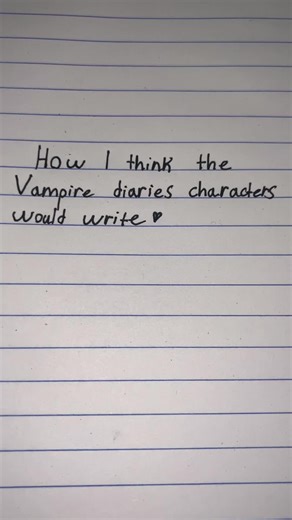 How I think the
Vampire diaries characters
would write ♥